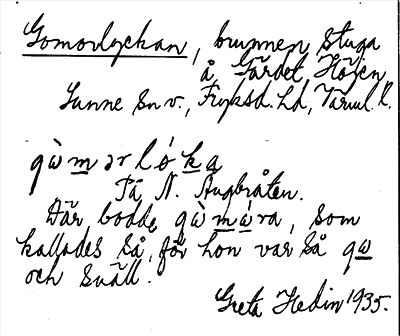 Gomorlyckan, brunnen, stuga
å Gärdet, Höjen
Sunne sn v., Fryksd. hd, Värml. l.
gὼmərlókɑ
På N. Ängbråten.
Där bodde gὼmώra, som
kallades så, för hon var så go
och snäll.
Greta Hedin 1935.